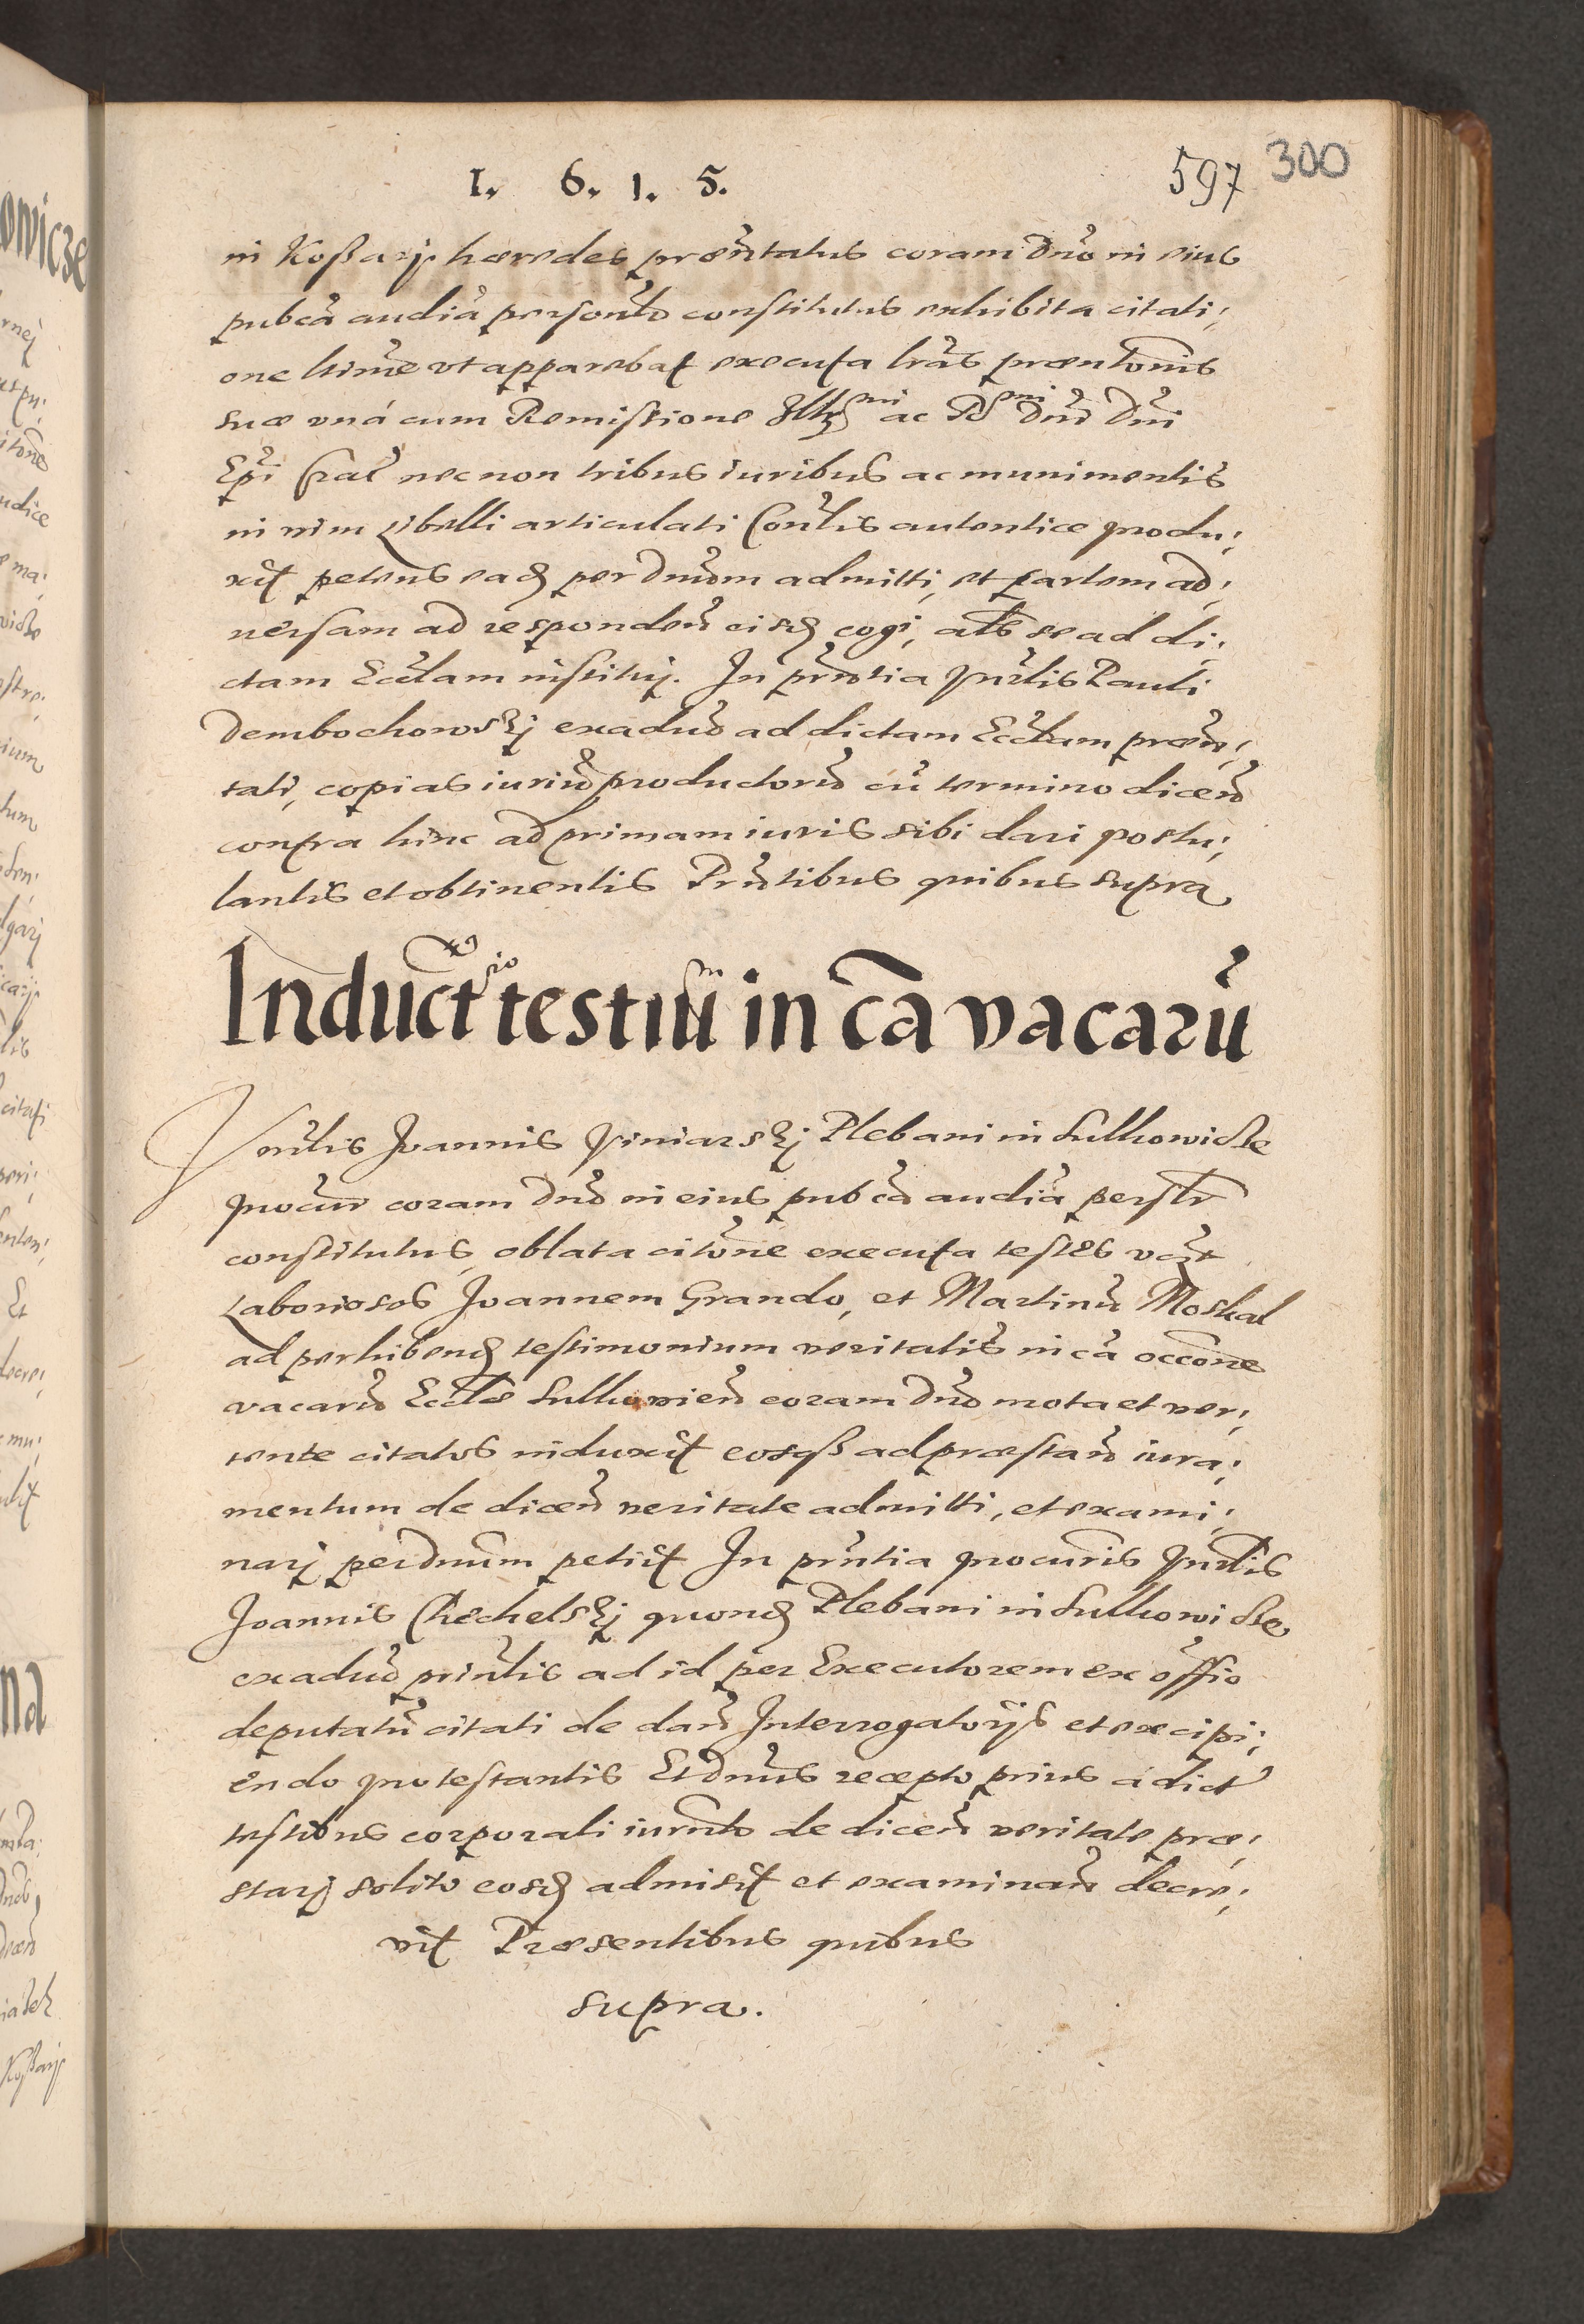 1. 6. 1. 5.
597 300
in Koßarȳ hæredes præn̄tatus coram Dn̄o in eius
pub̄ca audiā person̄lr constitutus exhibita citati:
one ltime vt apparebat executa lr̄as præntōnis
suæ vná cum Remissione Illmi ac Rmi Dn̄i Dn̄i
Ep̄i Crac̄ necnon tribus iuribus ac munimentis
in vim Libelli articulati Con̄lis autentice produ:
xit petens ead per Dn̄um admitti, et partem ad:
uersam ad responden̄ eisd cogi, al̄s se ad di:
ctam Eccl̄am institui. In prn̄tia Vn̄rlis Pauli
Dembochowskj exaduo ad dictam Eccl̄am præn̄:
tati, copias iuriū productorū cū termino dicen̄
contra hinc ad primam iuris sibi dari postu:
lantis et obtinentis Prn̄tibus quibus supra
Inductio testiū in cā vacarū
Vn̄rlis Joannis Viniarskj Plebani in Sulkowicze
procur̄ coram Dn̄o in eius pub̄ca audiā perslr̄
constitutus, oblata citōne executa testes vc̄z
Laboriosos Joannem Grando, et Martinū Moskal
ad perhibend testimonium veritatis in cā occōne
vacarū Eccl̄æ Sulkowien̄ coram Dn̄o mota et ver:
tente citatos induxit eosqß ad præstan̄ iura:
mentum de dicen̄ veritate admitti, et exami:
narj per Dn̄um petiit In prn̄tia procur̄is Vn̄rlis
Joannis Chechelskj quond Plebani in Sulkowicze
exaduo prin̄lis ad id per Executorem ex offio
deputatū citati de dan̄ Interrogatorijs et excipi:
endo protestantis Et Dn̄us recepto prius á dict
testibus corporali iurn̄to de dicen̄ veritate præ:
starj solito eosd admisit et examinan̄ decre:
uit Præsentibus quibus
supra.